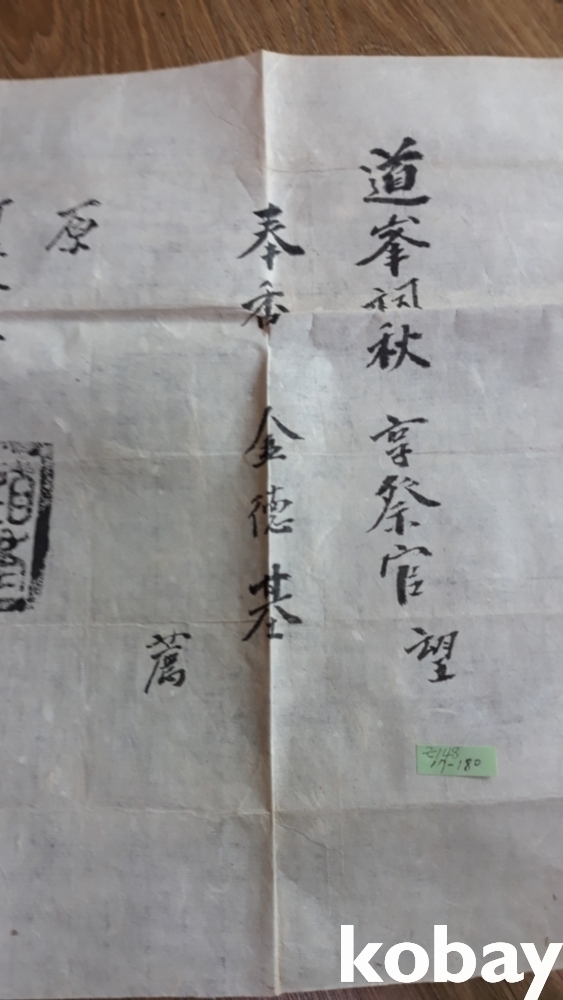 道峯祠秋 享祭官望
奉香 金德基
薦
原
2148
17-180
kobay